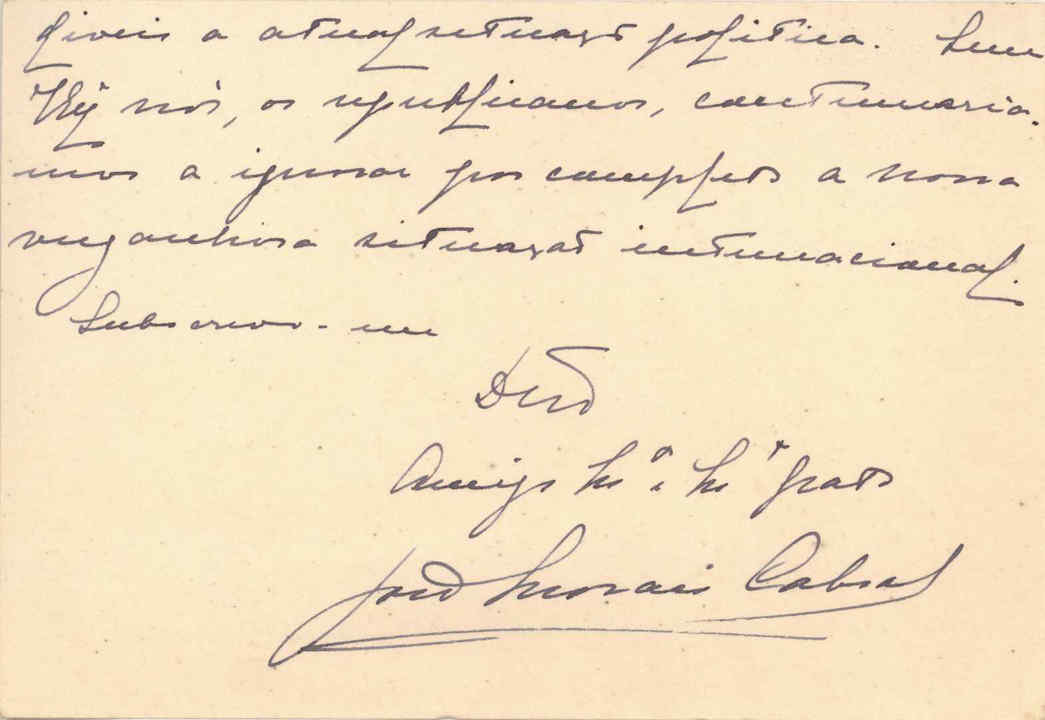 diveis a atual situação politica. Sem
nós, os republicanos, continuaria-
mos a ignorar por completo a nossa
vergonhosa situação internacional.
Subscrevo-me
Amigo Mº e Mº grato
José Morais Cabral